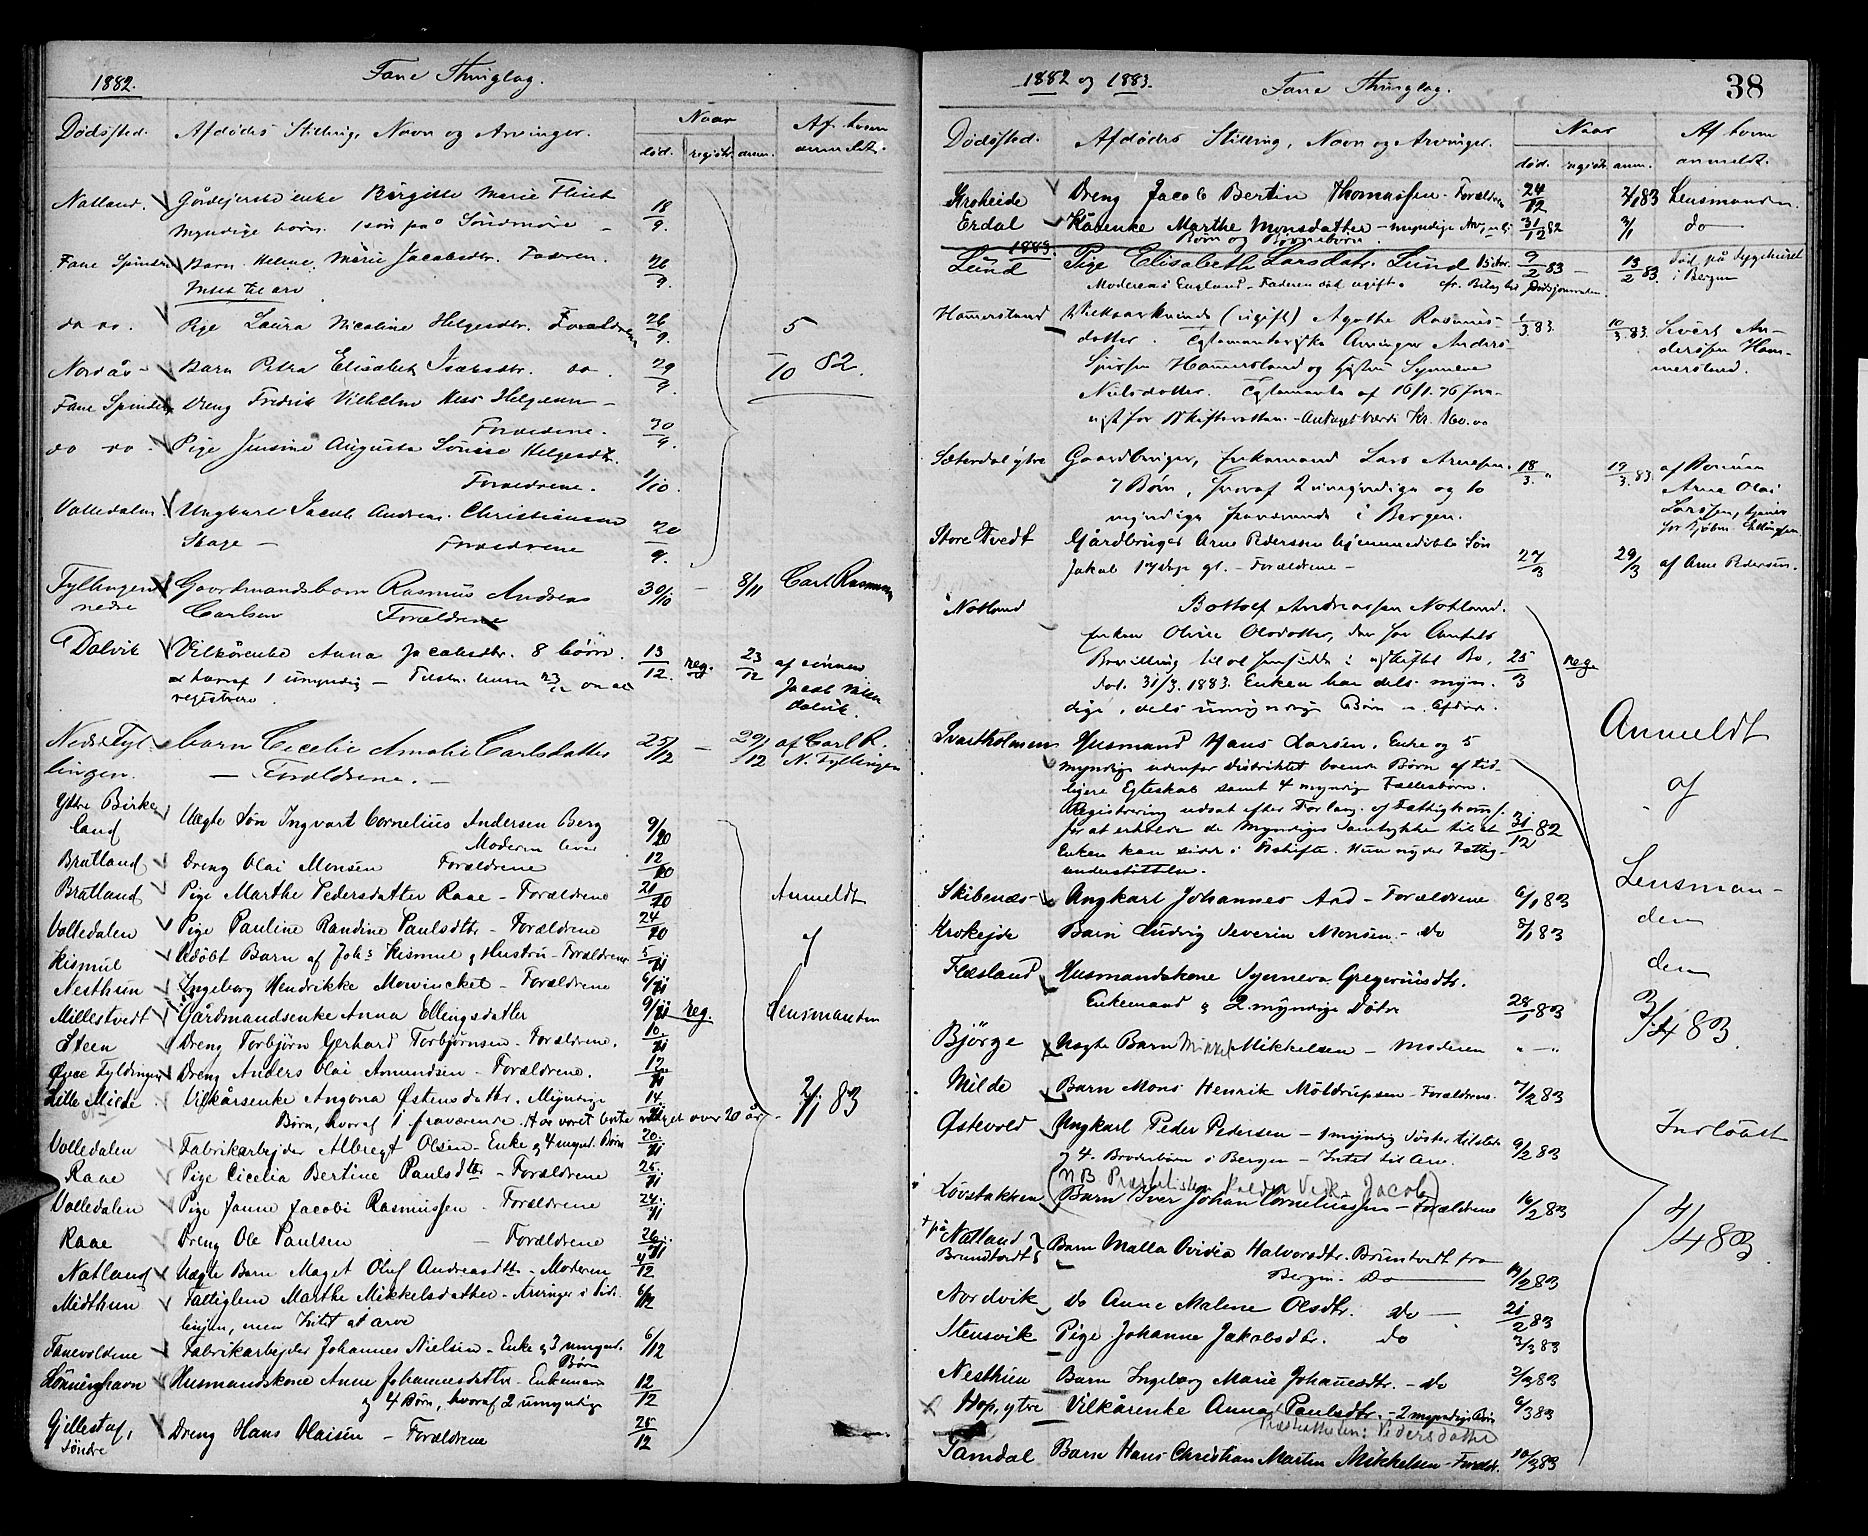 1882. Fane Thinglag.
Dødssted. Afdødes Stilling, Navn og Arvinger. Naar Af hvem
død. registr. anm. anmeldt.
Natland. Gårdejerske enke Birgitte Marie Flint 18/9.
Myndige børn. 1 søn på Søndmøre –
Fane Spinderi Barn Helene Marie Jacobsdtr. Faderen. 26/9.
Intet til arv
do do. Pige Laura Nicoline Helgesdtr. Forældrene 26/9. 5
Nordås – Barn Petra Elisabeth Isaksdtr. do. 29/9 /10 82.
Fane Spinderi Dreng Fredrik Vilhelm Hess Helgesen –
Forældrene. 20/9.
do do. Pige Jensine Augusta Lovise Helgesdtr.
Forældrene. 1/10.
Valledalen Ungkarl Jacob Andreas Christiansen
Stage – Forældrene 20/9.
Tyllingen Gaardmandsbarn Rasmus Andreas 30/10 — 8/11 Carl Rasmussen
nedre Carlsen Forældrene
Dalvik Vilkårenke Anna Jacobsdtr. 8 børn. 13/12. reg. 23/12 af sønnen
hvoraf 1 umyndig – 23/12 Jacob
registrere. Dalvik.
Nedre Tyl- barn Cecelie Amalie Carlsdatter 25/12 — 29/12 af Carl R.
lingen. — Forældrene. — N. Tyllingen
Ytre Birke-
land Uægte Søn Ingvart Cornelius Andersen Berg 9/10
Moderen lever
Bratland Dreng Olai Monsen Forældrene 12/10
Bratland Pige Marthe Pedersdatter Raae – Forældrene 21/10 Anmeldt
Valledalen Pige Pauline Randine Paulsdtr – Forældrene 24/10
Hismul Udøbt Barn af Johs Hismul & Hustru – Forældrene 5/11 af
Nesthun Ingeborg Hendrikke Mowinckel – Forældrene 6/11
Millestvedt Gårdmandsenke Anna Ellingsdatter 9/11 reg. Lensmanden
Steen Dreng Torbjørn Gerhard Torbjørnsen – Forældrene. 10/11
Øvre Tyldingen Dreng Anders Olai Amundsen – Forældrene. 12/11
Lille Milde Vilkårsenke Angona Østensdatter. Myndige 14/11 2/1 83
Børn, hvoraf 1 fraværende. Har været borte over 20 år.
Valledalen Fabrikarbejder Albregt Olsen – Enke & 4 umynd. Børn 20/11
Raae Pige Cicelia Bertine Paulsdtr – Forældrene 25/11
Valledalen Pige Janne Jacobi Rasmussen – Forældrene 24/11
Raae Dreng Ole Paulsen – Forældrene 26/11
Natland Uægte Barn Maget Oluf Andreasdtr – Moderen 4/12
Midthun Fattiglem Marthe Mikkelsdatter – Arvinger i Side- 6/12
linjen, men Intet at arve
Fanevoldene Fabrikarbejder Johannes Nielsen – Enke & 3 umynd. 6/12
Børn
Lønninghavn Husmandskone Anne Johannesdatter – Enkemand 12/12
& 4 Børn, hvoraf 2 umyndige
Gjellestad, Dreng Hans Olaisen – Forældrene 25/12
søndre
1882 og 1883. Fane Thinglag. 38
Dødssted. Afdødes Stilling, Navn og Arvinger. Naar Af hvem
død. registr. anm. anmeldt.
Krokeide Dreng Jacob Bertin Thomassen – Forældrene 24/12 2/1 83 Lensmanden.
Erdal Kårenke Marthe Monsdatter – myndige 31/12 82 3/1 do
Børn og Børnebørn.
1883.
Lund Pige Elisabeth Larsdatr. Lund 9/2 83 – 13/2 83. død på Sygehuset
Moderen i England – Faderen død ugift. cfr. Bilag til Dødsjournalen. i Bergen
Hammersland Vilkaarkvinde (ugift) Agathe Rasmus- 1/3 83. 10/3 83. Sivert An-
datter. Testamentariske Arvinger Anders derssen Ham-
Sjursen Hammersland og Hustru Synneve mersland.
Nielsdatter. Testamente af 16/1 76 frem-
lagt for Skifteretten. – Antaget værdi Kr. 160.00
Sæterdal ytre Gaardbruger, Enkemand Lars Arnesen. 18/3. 19/3 83. af Sønnen
7 Børn, hvoraf 2 umyndige og to Arne Olai
myndige fraværende i Bergen. Larssen,
Store Tvedt Gårdbruger Arne Pederssen hjemmedøbte Søn
Jakob 17 dage gl. – Forældrene – 27/3 29/3 af Arne Pedersen.
Natland Bottolf Andreassen Natland.
Enken Oline Olsdatter, der har Amtets
Bevilling til at hensidde i uskiftet Bo, 25/3 reg.
dat. 31/3. 1883. Enken har dels myn-
dige, dels umyndige Børn m. Afdøde.
Ivartholmen Husmand Hans Larsen. Enke og 5 Anmeldt
myndige udenfor Distriktet boende Børn af tid-
ligere Egteskab samt 4 myndige Fællesbørn. af
Registrering udsat efter Forlang. af Fattigkomm.
for at erholde de Myndiges Samtykke til at 31/12 82
Enken kan sidde i Uskifte. Hun nyder Fattig-
understøttelse. Lensman-
Skibenæs Ungkarl Johannes And – Forældrene 6/1 83
Krokejde Barn Ludvig Severin Monsen – Do 8/1 83 den
Flæsland Husmandskone Synneva Gregoriusdtr. den
Enkemand & 2 myndige Døtre 28/1 83 3/4 83.
Bjørge Uægte Barn Mikkel Mikkelsen – Moderen " – "
Milde Barn Mons Henrik Møldrupsen – Forældrene. 7/2 83
Østevold Ungkarl Peder Pedersen – 1 myndig Søster tilstede 9/2 83 Indløbet
og 4 Broderbørn i Bergen – Intet til Arv.
(NB Præstelisten kalder Jacob)
Løvstakken Barn Iver Johan Corneliussen – Forældrene 16/2 83 4/4 83
† på Natland
Brundtvedt Barn Malla Ovidia Halvorsdtr. Brüntvedt fra
Bergen. Do 19/2 83
Nordvik Do Anne Malene Olsdtr. Do — 21/2 83
Stensvik Pige Johanne Jakobsdtr. Do 2/3 83
Nesthun Barn Ingeborg Marie Johannesdtr. – Do 2/3 83
Hop, ytre Vilkårenke Anna Paulsdtr. – 2 myndige Børn 6/3 83
Præstelisten: Pedersdatter
Tamdal Barn Hans Christian Martin Mikkelsen – Forældr. 10/3 83